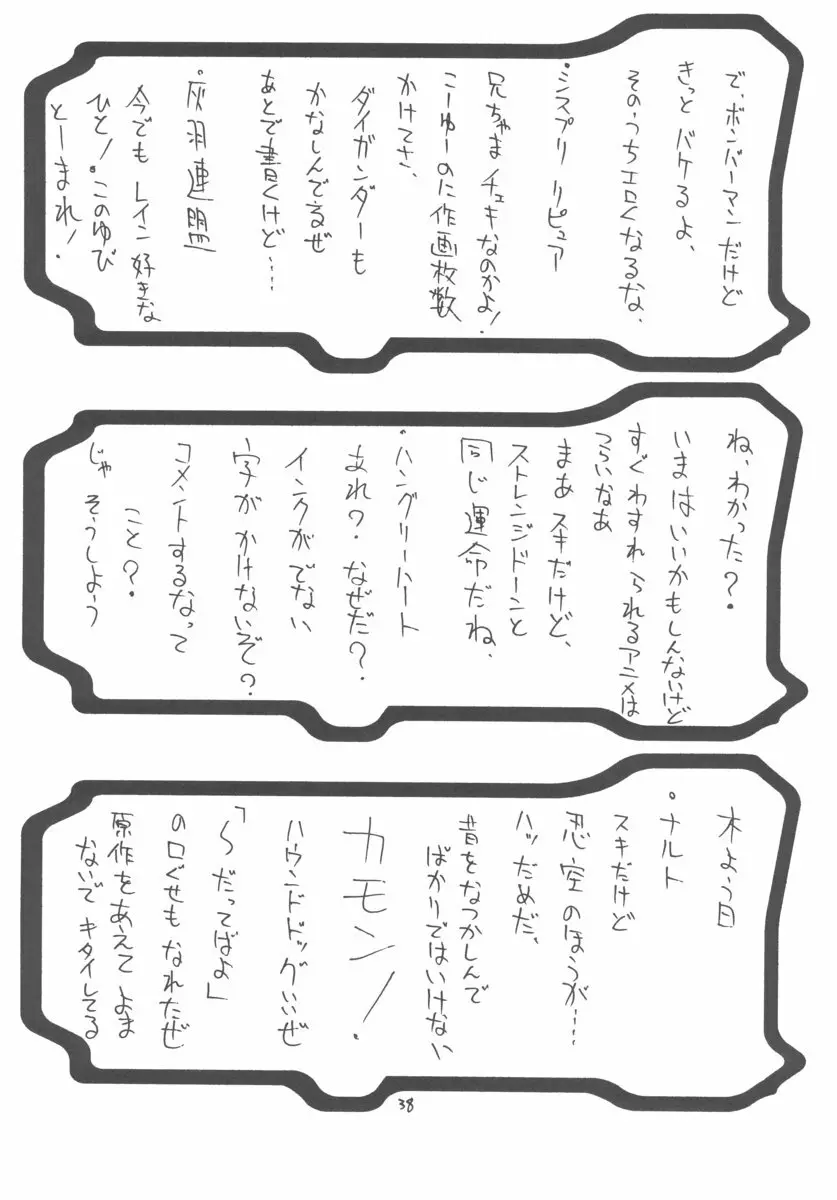 で、ボンバーマンだけど
きっとバケるよ、
そのうちエロくなるな、
・シスプリ リピュア
兄ちゃまチェキなのかよ!
こーゆーのに作画枚数
かけてさ、
ダイガンダーも
かなしんでるぜ
あとで書くけど……
・灰羽連盟
今でも レイン好きな
ひと!このゆび
とーまれ!
ね、わかった?
いまはいいかもしんないけど
すぐわすれられるアニメは
つらいなあ
まあスキだけど、
ストレンジドーンと
同じ運命だね、
・ハングリーハート
あれ?なぜだ?
インクがでない
字がかけないぞ?
コメントするなって
こと?
じゃ そうしよう
木よう日
・ナルト
スキだけど
忍空のほうが……
ハッだめだ、
昔をなつかしんで
ばかりではいけない
カモン!
ハウンドドッグいいぜ
「〜だってばよ」
の口ぐせもなれたぜ
原作をあえてよま
ないでキタイしてる
38